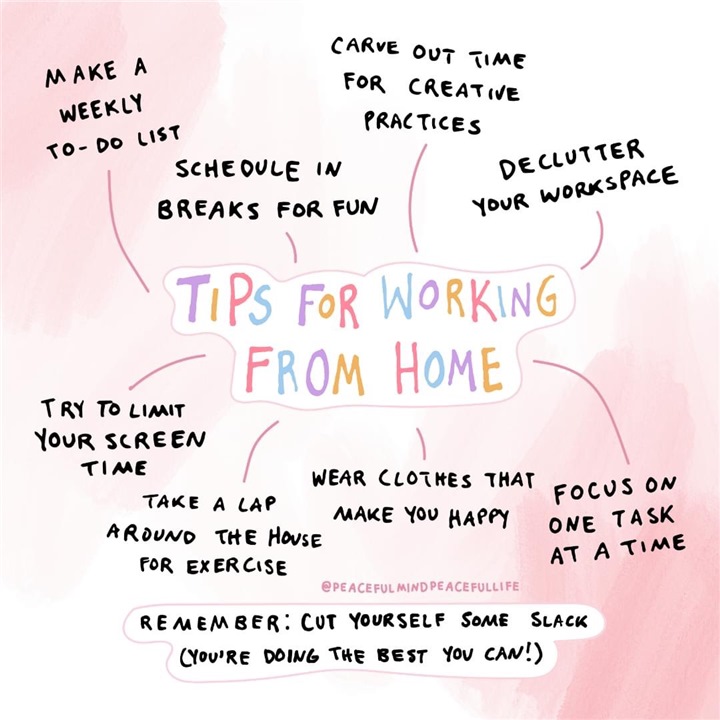 MAKE A
WEEKLY
TO-DO LIST
CARVE OUT TIME
FOR CREATIVE
PRACTICES
SCHEDULE IN
BREAKS FOR FUN
DECLUTTER
YOUR WORKSPACE
TIPS FOR WORKING
FROM HOME
TRY TO LIMIT
YOUR SCREEN
TIME
TAKE A LAP
AROUND THE HOUSE
FOR EXERCISE
WEAR CLOTHES THAT
MAKE YOU HAPPY
FOCUS ON
ONE TASK
AT A TIME
@PEACEFULMINDPEACEFULLIFE
REMEMBER: CUT YOURSELF SOME SLACK
(YOU'RE DOING THE BEST YOU CAN!)